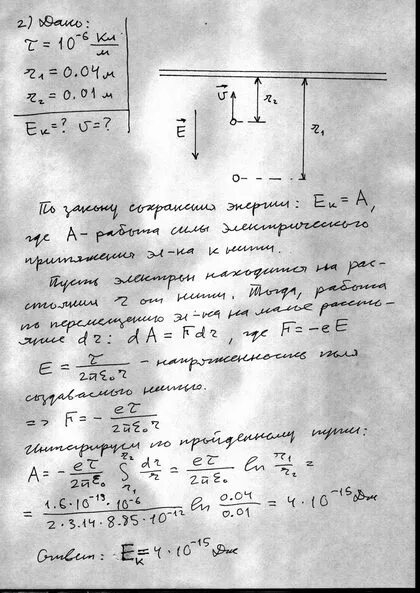 2) Дано:
τ = 10⁻⁶ Кл/м
r₁ = 0.04 м
r₂ = 0.01 м
Eк = ? υ = ?
E⃗
υ⃗
r₂
r₁
По закону сохранения энергии: Eк = A,
где A - работа силы электрического
притяжения эл-на к нити.
Пусть электрон находится на рас-
стоянии r от нити. Тогда, работа
по перемещению эл-на на малое рассто-
яние dr: dA = Fdr, где F = -eE
E = τ/(2πε₀r) - напряженность поля
создаваемого нитью.
=> F = - eτ/(2πε₀r)
Интегрируем по пройденному пути:
A = - eτ/(2πε₀) ∫_{r₁}^{r₂} dr/r = eτ/(2πε₀) ln r₁/r₂ =
= (1.6·10⁻¹⁹·10⁻⁶)/(2·3.14·8.85·10⁻¹²) ln 0.04/0.01 = 4·10⁻¹⁵ Дж
Ответ: Eк = 4·10⁻¹⁵ Дж